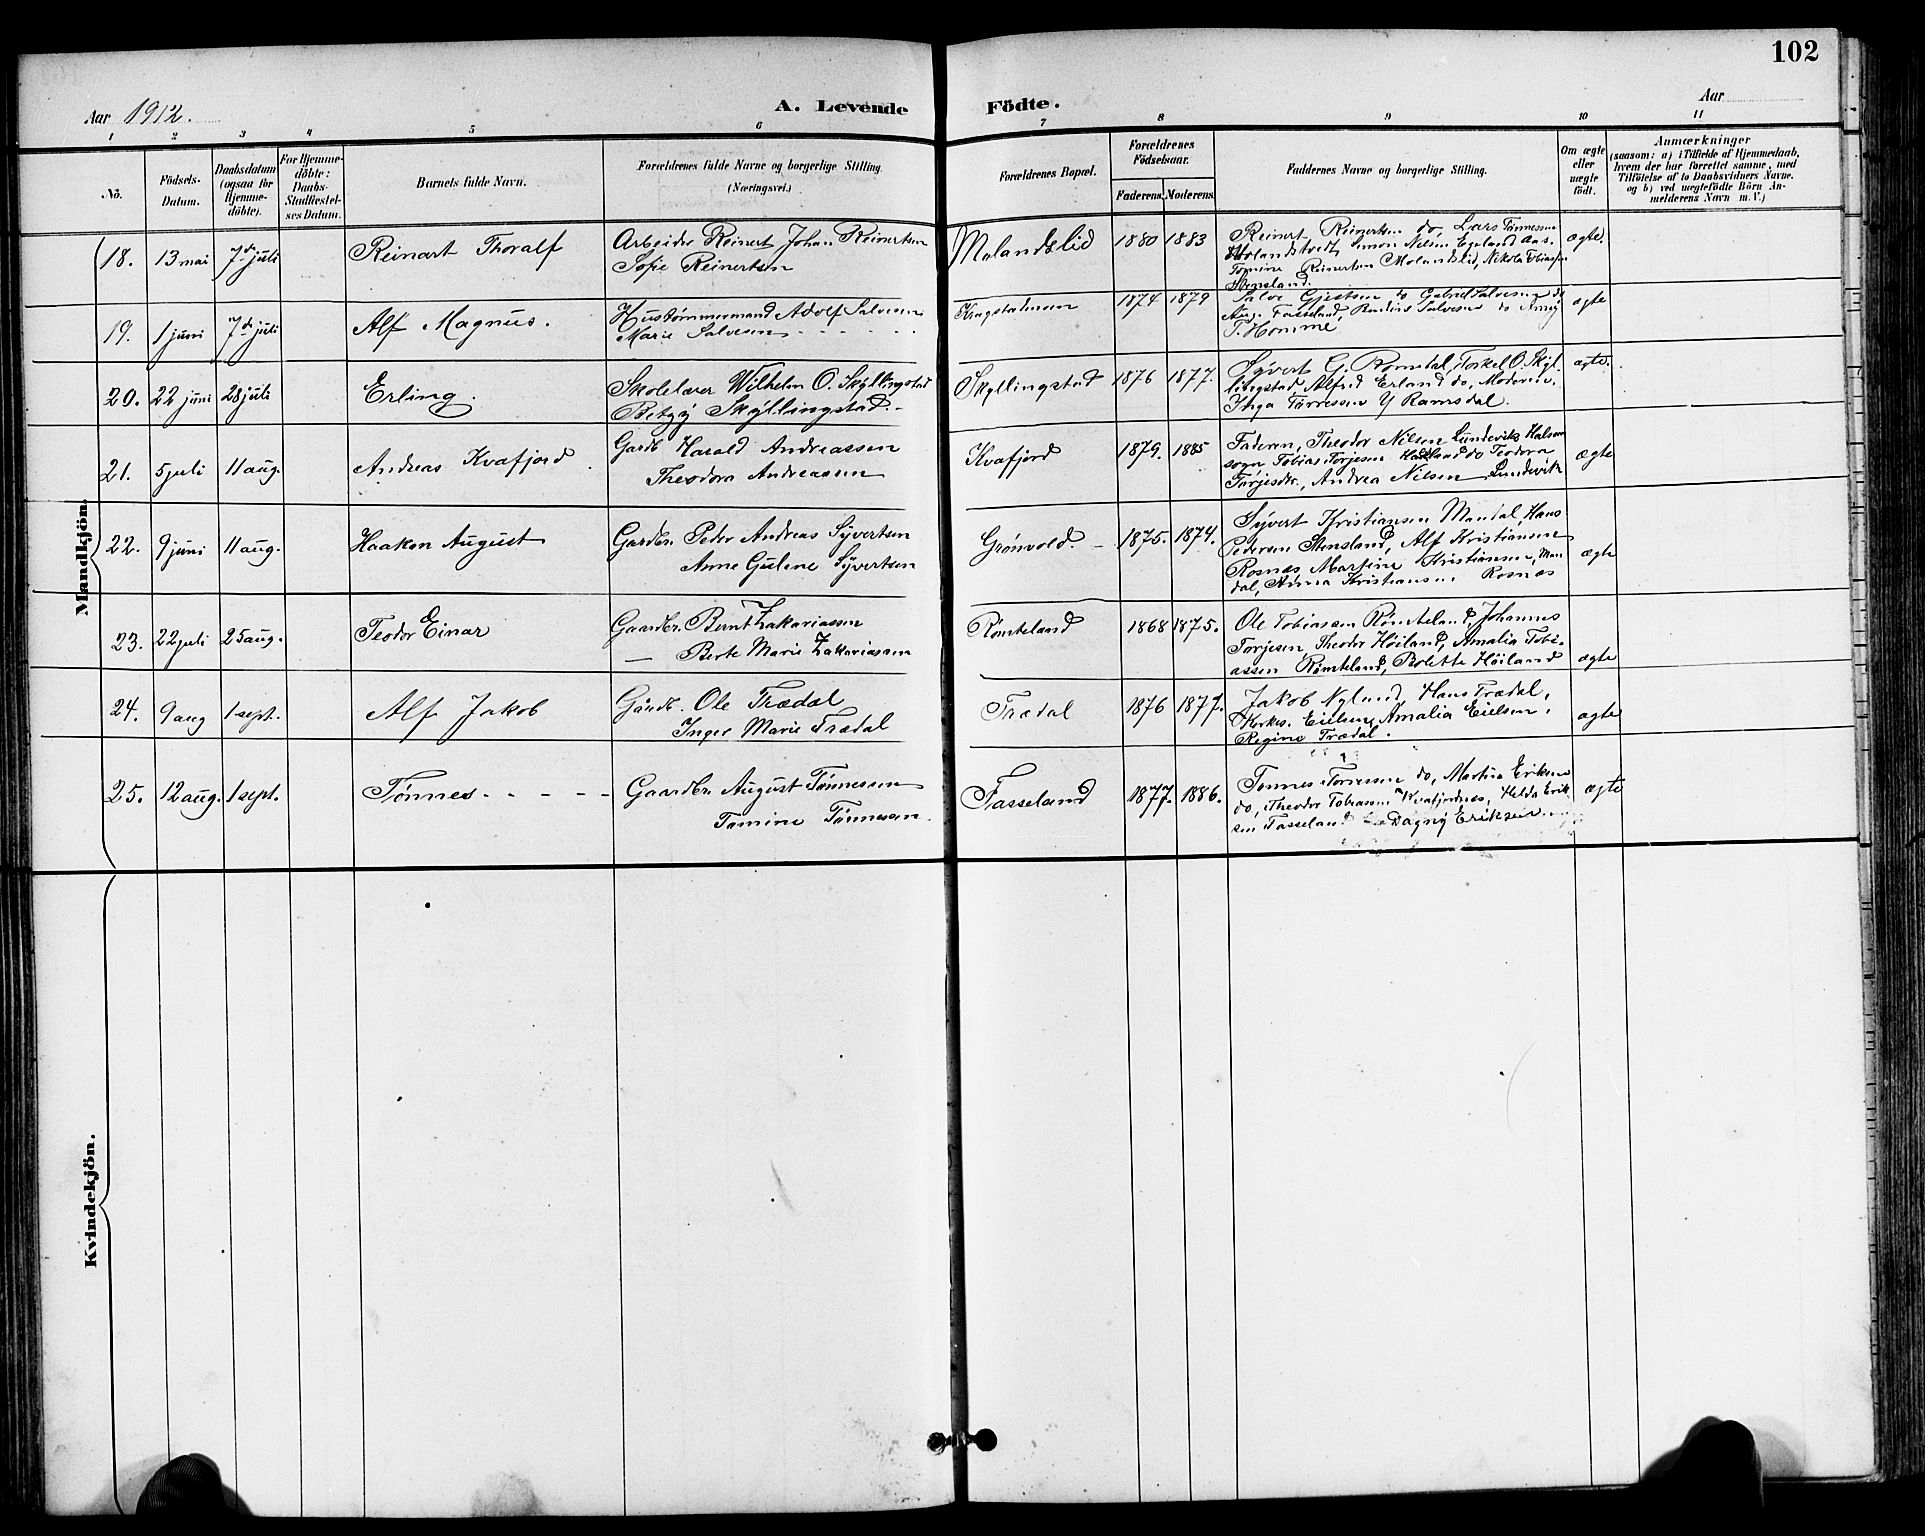 102
Aar 1912.
A. Levende Födte.
Aar
1 2 3 4 5 6 7 8 9 10 11
Nö.
Födsels-
Datum.
Daabsdatum
(ogsaa for
Hjemme-
döbte).
For Hjemme-
döbte:
Daabs-
Stadfæstel-
ses Datum.
Barnets fulde Navn.
Forældrenes fulde Navne og borgerlige Stilling
(Næringsvei.)
Forældrenes Bopæl.
Forældrenes
Födselsaar.
Faderens. Moderens.
Faddernes Navne og borgerlige Stilling.
Om ægte
eller
uægte
födt.
Anmærkninger
(saasom: a) i Tilfælde af Hjemmedaab,
hvem der har forrettet samme, med
Tilföielse af to Daabsvidners Navne.
og b) ved uegtefödte Börn An-
melderens Navn m. V.)
Mandkjön.
18. 13 mai 7de juli Reinart Thoralf
Arbeider Reinert Johan Reinertsen
Sofie Reinertsen
Molandslid 1880 1883
Reinert Reinertsen do, Lars Tönnessen
Holandstvedt, Simon Nilsen Egeland Aas.
Tomine Reinertsen Molandslid, Nikolai Tobiassen
Stensland.
ægte.
19. 1 juni 7de juli Alf Magnus.
Hustömmermand Adolf Salvesen
Marie Salvesen
Kragstadmoen 1874 1879
Salve Gjertsen do Gabriel Salvesen do
Aug. Fasseland, Salvesen do
T. Homme
ægte
20. 22 juni 28 juli Erling.
Skolelærer Wilhelm O. Skyllingstad
Betzy Skyllingstad.
Skyllingstad 1876 1877.
Syvert G. Römdal, Torkel O. Skyl-
lingstad Alfred Erland do, Moderen.
Inga Tørressen Y Ramsdal.
ægte.
21. 5 juli 11 aug. Andreas Kvafjord
Gardb. Harald Andreassen
Theodora Andreassen
Kvafjord 1879. 1885
Faderen, Theodor Nilsen Lundevik Halsen
sogn Tobias Torjesen do Teodora
Torjesdtr., Andrea Nilsen Lundevik
ægte
22. 9 juni 11 aug. Haakon August
Gardbr. Peder Andreas Syvertsen
Anne Guline Syvertsen
Grönvold. 1875. 1874.
Syvert Kristiansen Mandal, Hans
Pedersen Stensland, Alf Kristiansen
Rosnæs Martine Kristiansen, Man-
dal, Anna Kristiansen Rosnæs
ægte
23. 22 juli 25 aug. Teodor Einar
Gaardbr. Bernt Zakariassen
— Berte Marie Zakariassen
Römteland 1868 1875.
Ole Tobiassen Römteland, Johannes
Torjesen, Theodor Höiland, Amalia Tobi-
assen Römteland, Bolette Höiland
ægte
24. 9 aug 1 sept. Alf Jakob
Gårdb. Ole Trædal
Inger Marie Trædal
Trædal 1876 1877.
Jakob Nylund, Hans Trædal,
Eielsen, Amalia Eielsen,
Regine Trædal.
ægte
25. 12 aug. 1 sept. Tönnes
Gaardbr. August Tönnesen
Tomine Tönnesen.
Fasseland 1877. 1886.
Tönnes Tönnessen do, Martin Eriksen
do, Theodor Tobiassen Kvafjordnes, Helda Erik-
sen Fasseland Dagny Eriksen
ægte
Kvindekjön.